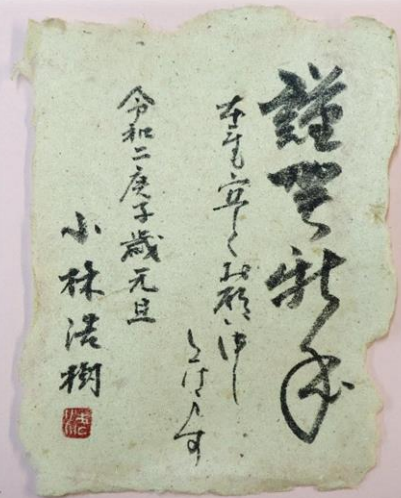 謹賀新年
本年も宜しくお願い申し
上げます
令和二庚子歳元旦
小林浩樹